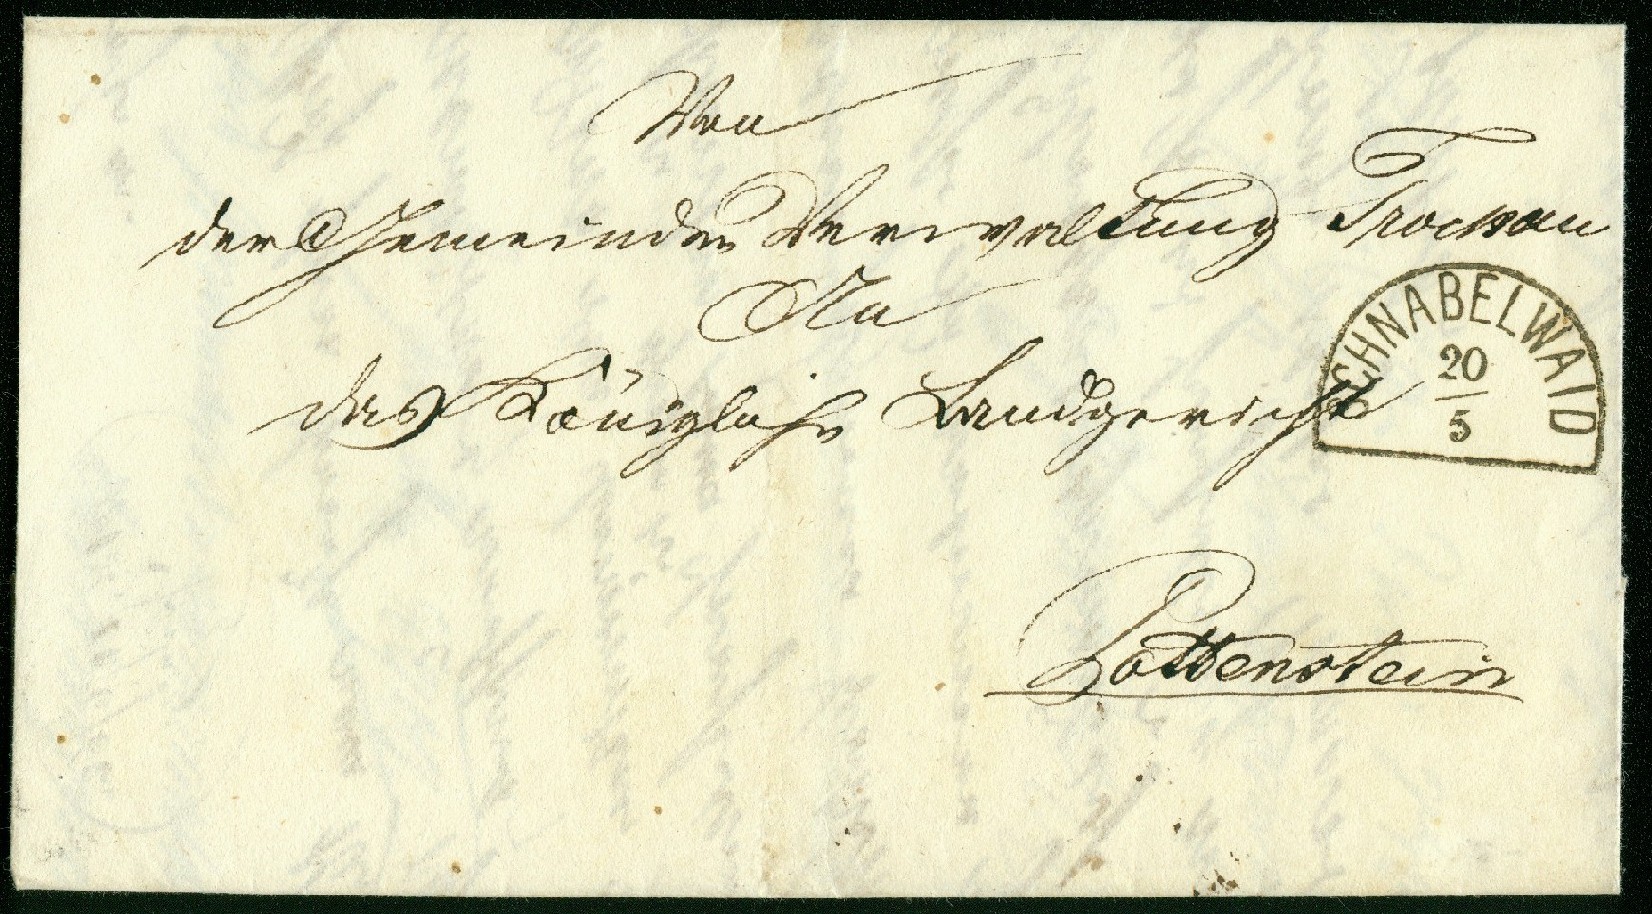 Von
der Gemeinde Verwaltung Trockau
An
das Königliche Landgericht
SCHNABELWAID
20
5
Pottenstein